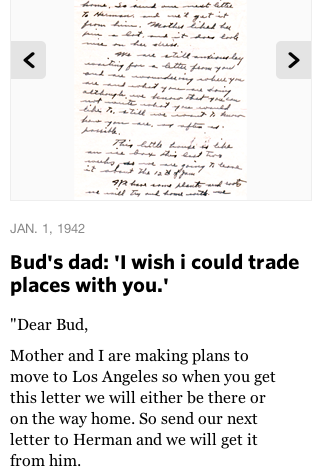 home, so send our next letter
to Herman and we'll get it
from him. Mother liked her
pin a lot, and it does look
nice on her dress.
We are still anxiously
waiting for a letter from you
and are wondering where you
are and what you are doing
although we know that you can
not write what you would
like to, still we want to know
how you are, as often as
possible.
This little house is like
an ice box this last two
weeks, so we are going to leave
it about the 12th of Jan
We have some plants and
we will try and home with
JAN. 1, 1942
Bud's dad: 'I wish i could trade
places with you.'
"Dear Bud,
Mother and I are making plans to
move to Los Angeles so when you get
this letter we will either be there or
on the way home. So send our next
letter to Herman and we will get it
from him.